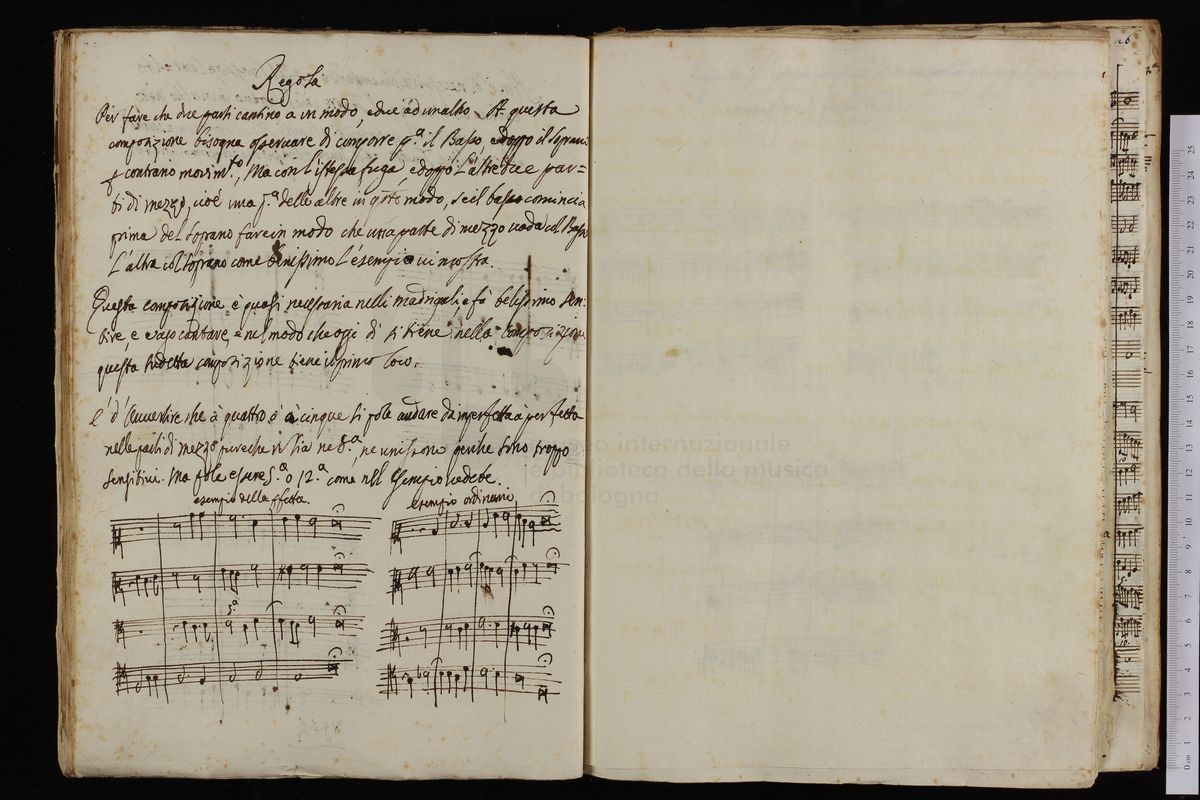 Regola
Per fare che due parti cantino a un modo, e due ad un altro. A questa
compositione bisogna osservare di comporre p.ª il Basso, e doppo il Soprano
contrano movim.to, Ma con l'istessa fuga, e doppo l'altre due par=
ti di mezzo, cioè una 5.ª delle altre in q.sto modo, se il basso comincia
prima del soprano fare in modo che una parte di mezzo vada col Basso
L'altra col soprano come benissimo l'esempio vi mostra.
Questa compositione è quasi necessaria nelli madrigali e fà belissimo sen:
tire e vago cantare, e nel modo che oggi di si tiene nella compositione
questa sudetta compositione tiene il primo loco.
E d'Avvertire che à quattro ò à cinque si pole andare da imperfetta à perfetta
nelle parti di mezzo purche non sia ne 8.ª, ne unissono perche sono troppo
sensitivi. Ma pole essere 5.ª o 12.ª come nell Esempio vedete.
esempio della
esempio ordinario
5ª
26
museo internazionale
e biblioteca della musica
di bologna
0 cm 1 2 3 4 5 6 7 8 9 10 11 12 13 14 15 16 17 18 19 20 21 22 23 24 25